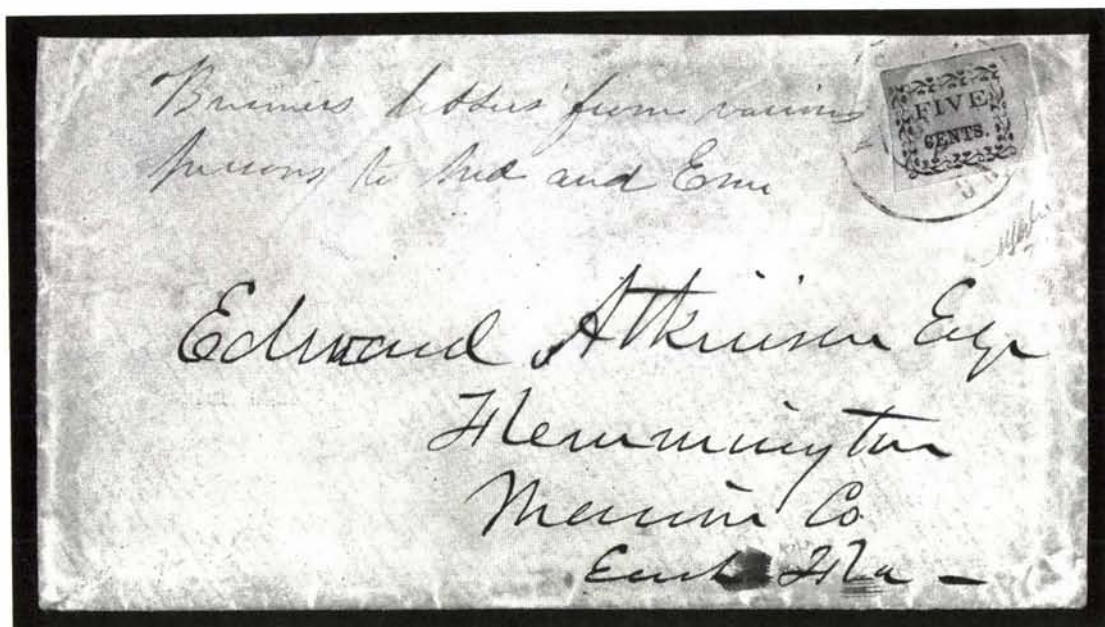 Business letters from various
persons to and
FIVE
CENTS.
Edward Atkinson Esqr
Flemmington
Marion Co
East Fla —